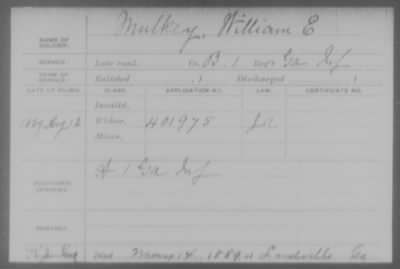 NAME OF SOLDIER: Mulkey, William E
SERVICE: Late rank, Co. B. 1 Reg't Ga Inf
TERM OF SERVICE: Enlisted , 1 Discharged , 1
DATE OF FILING. CLASS. APPLICATION NO. LAW. CERTIFICATE NO.
Invalid,
1889 Aug 12 Widow, 401975
Minor,
ADDITIONAL SERVICES: A 1 Ga Inf
REMARKS:
Died 14, 1889, at Ga